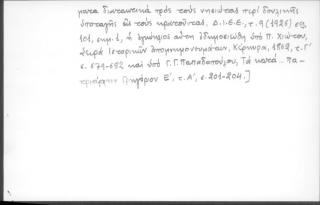 ματα διατακτικά πρὸς τοὺς νησιώτας περὶ δουλικῆς
ὑποταγῆς εἰς τοὺς κρατοῦντας, Δ.Ι.Ε.Ε., τ. 9 (1926) σσ.
101, σημ. 1, ἡ ἐγκύκλιος αὕτη ἐδημοσιεύθη ὑπὸ Π. Χιώτου,
Σειρὰ Ἱστορικῶν ἀπομνημονευμάτων, Κέρκυρα, 1882, τ. Γ΄
σ. 679-692 καὶ ὑπὸ Γ. Γ. Παπαδοπούλου, Τὰ κατὰ... Πα-
τριάρχην Γρηγόριον Ε΄, τ. Α΄, σ. 201-204.]